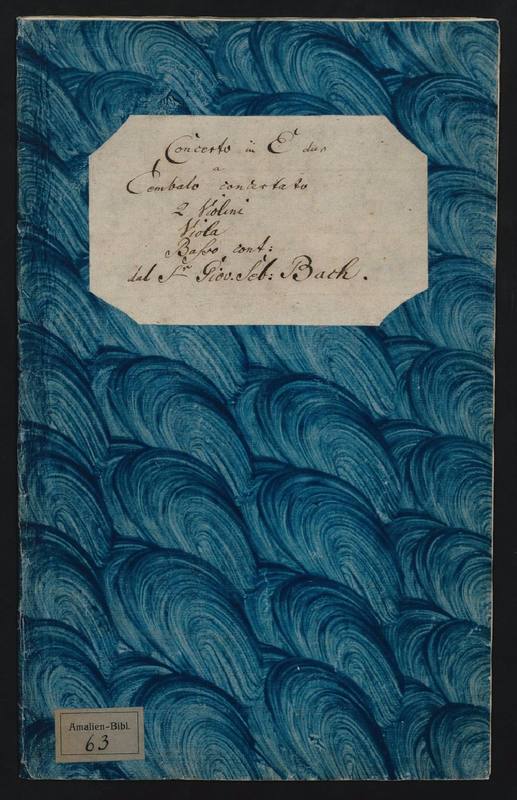 Concerto in E dur
a
Cembalo concertato
2 Violini
Viola
Basso cont:
dal Sr. Giov. Seb: Bach.
Amalien-Bibl.
63